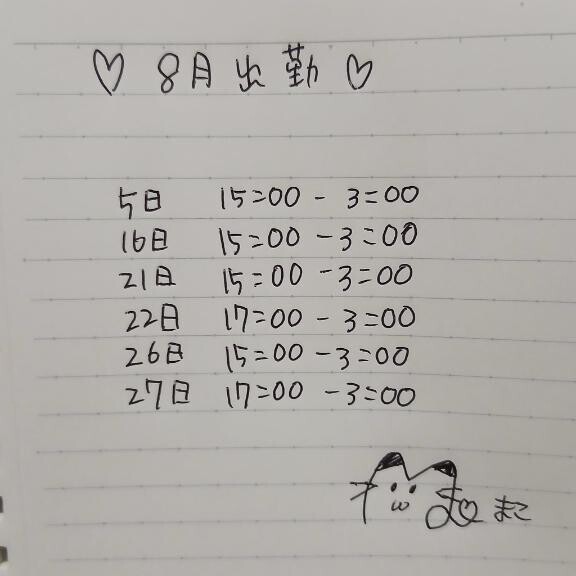 ♡ 8月出勤 ♡
5日 15:00 - 3:00
16日 15:00 - 3:00
21日 15:00 - 3:00
22日 17:00 - 3:00
26日 15:00 - 3:00
27日 17:00 - 3:00
まこ